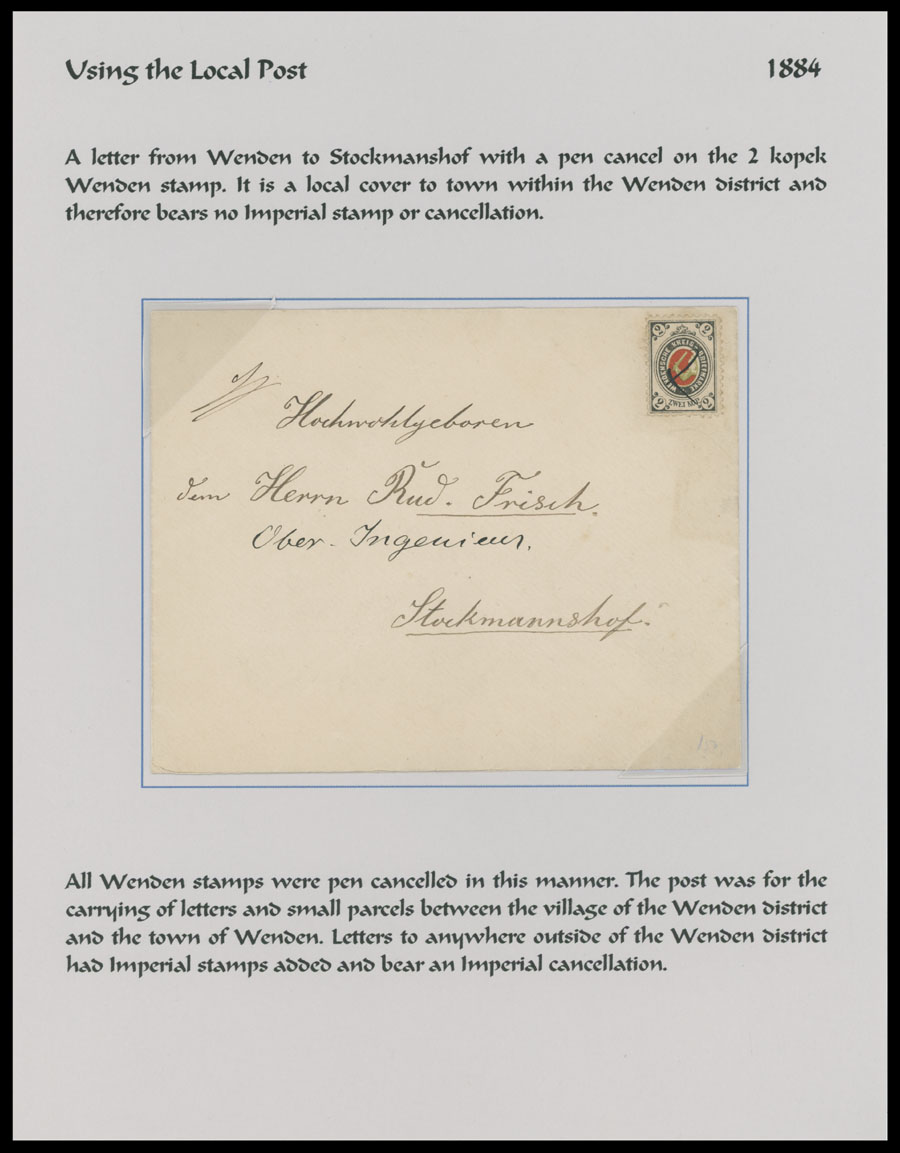 Using the Local Post 1884
A letter from Wenden to Stockmanshof with a pen cancel on the 2 kopek
Wenden stamp. It is a local cover to town within the Wenden district and
therefore bears no Imperial stamp or cancellation.
2 2
WENDENSCHE KREIS BRIEFMARKE
ZWEI KOP.
2 2
Hochwohlgeboren
dem Herrn Rud. Frisch.
Ober-Ingenieur.
Stockmannshof.
All Wenden stamps were pen cancelled in this manner. The post was for the
carrying of letters and small parcels between the village of the Wenden district
and the town of Wenden. Letters to anywhere outside of the Wenden district
had Imperial stamps added and bear an Imperial cancellation.